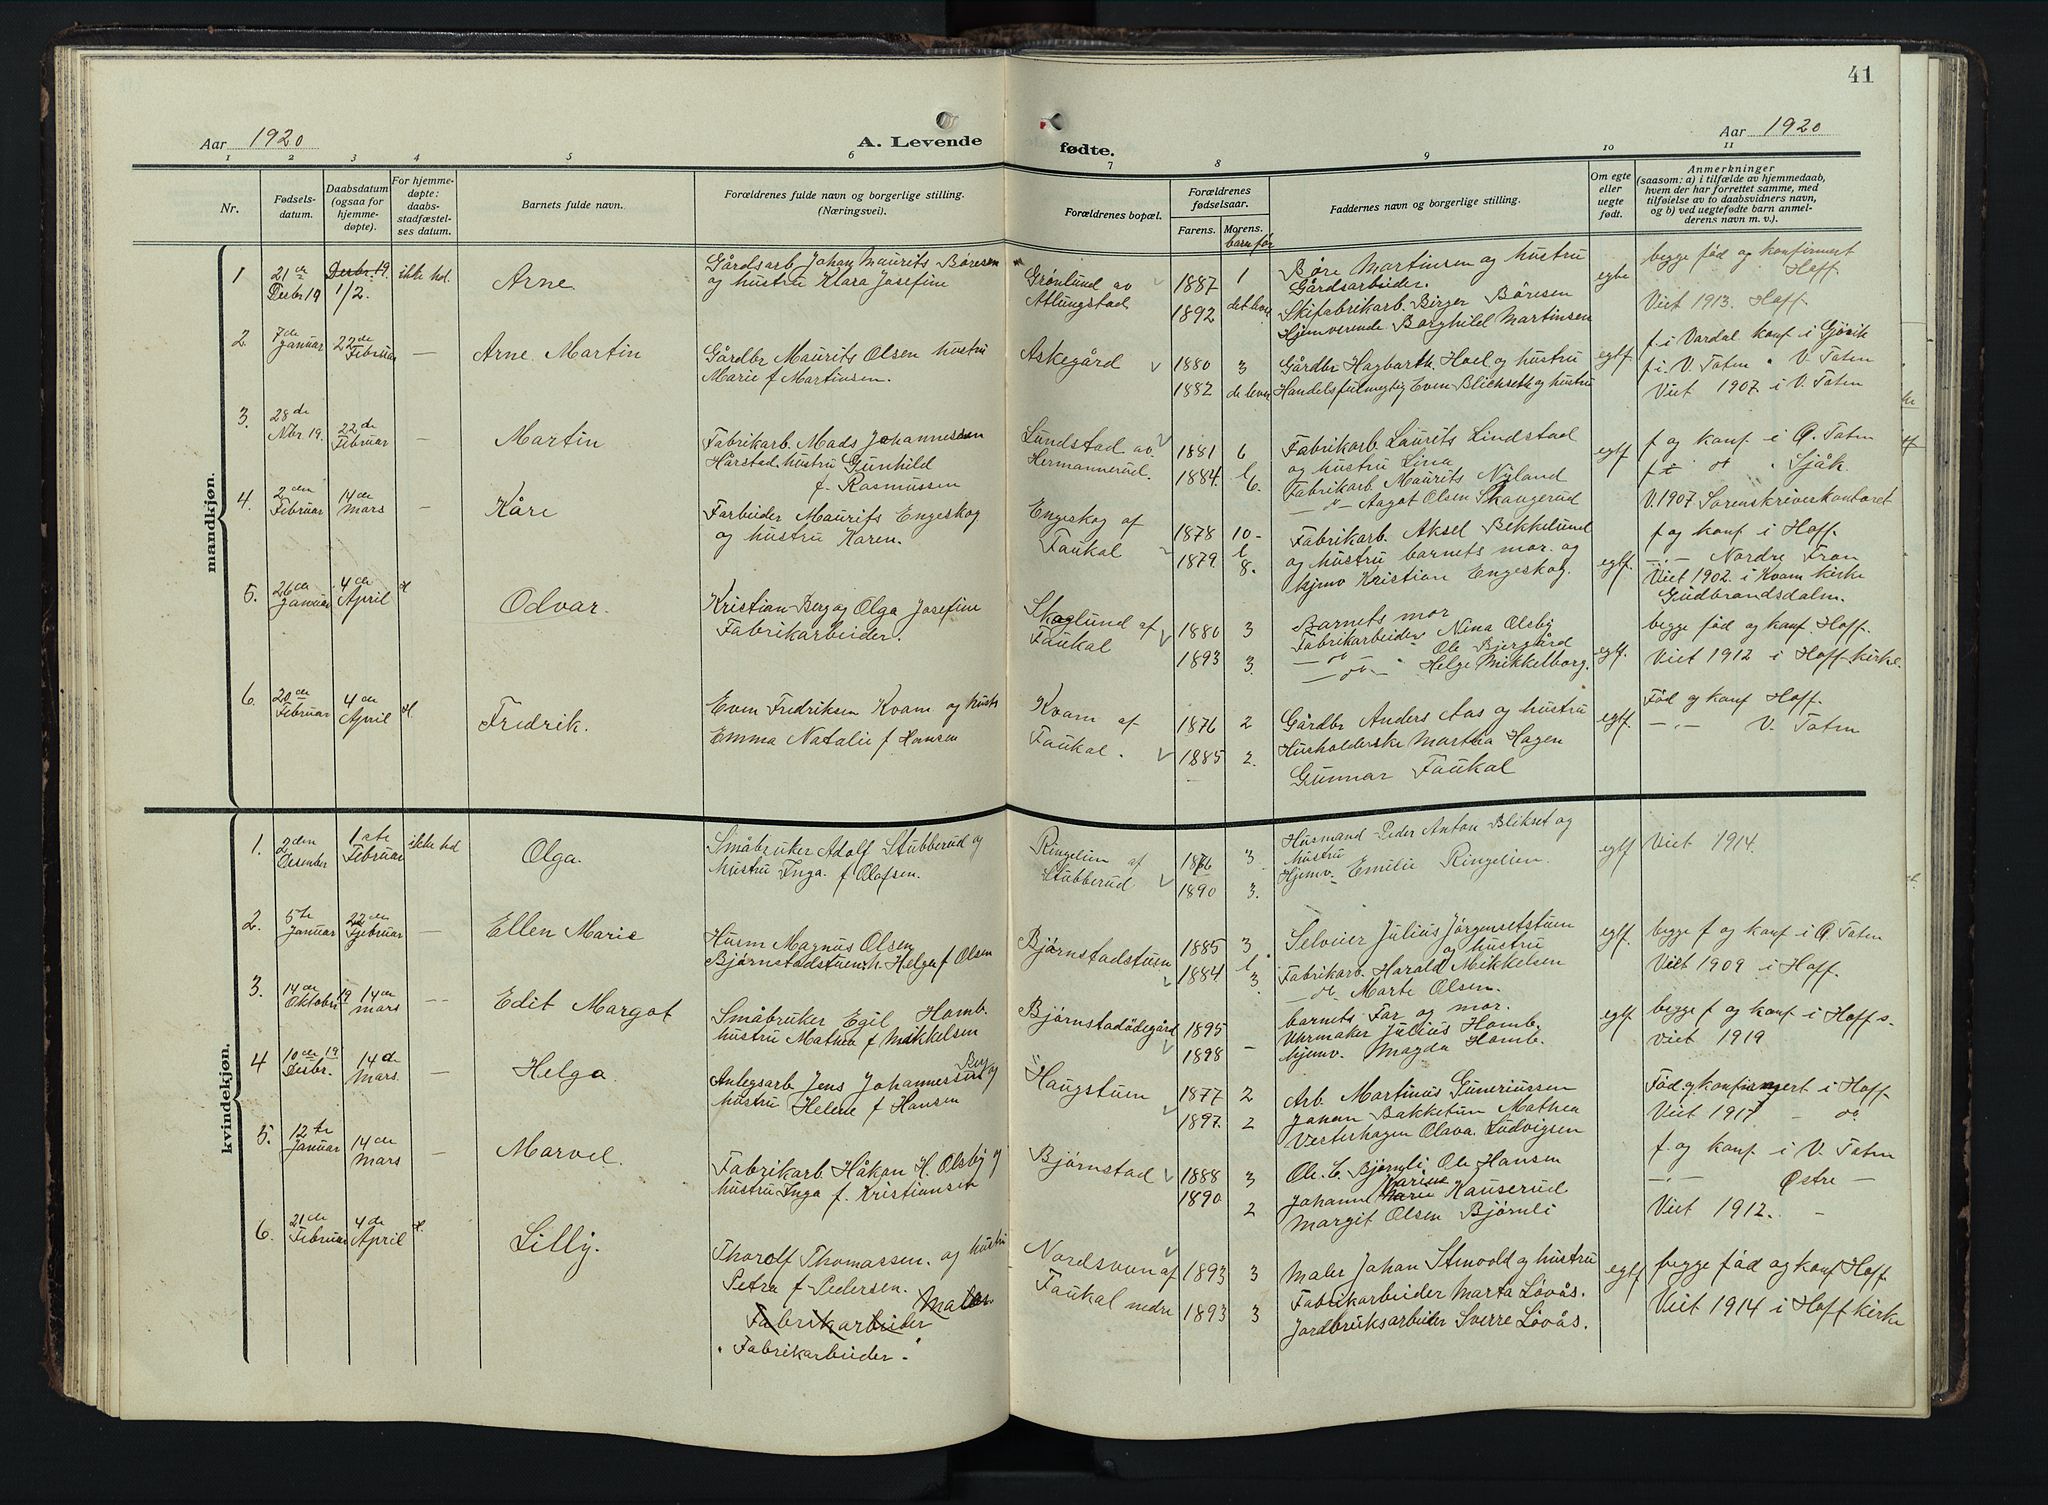 41
Aar 1920
A. Levende fødte.
Aar 1920
1 2 3 4 5 6 7 8 9 10 11
Nr.
Fødselsdatum.
Daabsdatum (ogsaa for hjemmedøpte).
For hjemmedøpte: daabsstadfæstelses datum.
Barnets fulde navn.
Forældrenes fulde navn og borgerlige stilling. (Næringsvei).
Forældrenes bopæl.
Forældrenes fødselsaar.
Farens. Morens.
barn før
Faddernes navn og borgerlige stilling.
Om egte eller uegte født.
Anmerkninger
(saasom: a) i tilfælde av hjemmedaab, hvem der har forrettet samme, med tilføielse av to daabsvidners navn, og b) ved uegtefødte barn anmelderens navn m. v.).
mandkjøn.
1 21de Desbr 19 Desbr. 19. 1/2. ikke hd. Arne
Gårdsarb. Johan Maurits Børesen
og hustru Klara Josefine
Grønlund av
Atlungstad
1887 1
1892 det lever
Børe Martinsen og hustru
Gårdsarbeider.
Skifabrikarb. Birger Børesen
Hjemværende Borghild Martinsen
egte
begge fød og konfirmert
Hoff
Viet 1913. Hoff
2. 7de Januar 22de Februar — Arne Martin
Gårdbr Maurits Olsen hustru
Marie f Martinsen.
Askegård
1880 3
1882 de lever
Gårdbr Hagbarth Hoel og hustru
Handelsfulmegtig Even Blichset og hustru
egtf
f. i Vardal konf i Gjøvik
f. i. V. Toten " V. Toten
Viet 1907 i V. Toten
3. 28de Nbr. 19. 22de Februar — Martin
Fabrikarb. Mads Johannessen
Hårstad hustru Gunhild
f. Rasmussen
Lundstad av
Hermannerud.
1881 6
1884. l 6.
Fabrikarb. Laurits Lindstad
og hustru Lina
Fabrikarb. Maurits Nyland
— " — Aagot Olsen Skangerud
egtf
f og konf i Ø. Toten
f i do " Sjåk.
V. 1907 Sorenskriverkontoret
4. 2den Februar 14de Mars — Kåre
Farbeider Maurits Engeskog
og hustru Karen.
Engeskog af
Faukal
1878 10 -
1879 l 8.
Fabrikarb. Aksel Bekkelund
og hustru barnets mor. og
hjmv Kristian Engeskog.
egtf.
f og konf i Hoff.
—.— Nordre Fron
Viet 1902. i Kvam kirke
Gudbrandsdalen.
5. 26de Januar 4de April H Odvar.
Kristian Berg og Olga Josefine
Fabrikarbeider.
Skoglund af
Faukal
1880 3
1893 3.
Barnets mor
Fabrikarbeider Nina Olsby
— do — " Ole Bjergård
— do — " Helge Mikkelborg.
egtf.
begge fød og konf. Hoff.
Viet 1912 i Hoff kirke.
6. 20de Februar 4de April H. Fredrik.
Even Fredriksen Kvam og hustr
Emma Natalie f. Hansen
Kvam af
Faukal.
1876 2
1885 2.
Gårdbr Anders Aas og hustru
Husholderske Martha Hagen
Gunnar Faukal
egtf.
Fød og konf Hoff.
—.— V. Toten
kvindekjøn.
1. 2den Desember 1ste Februar ikke hd Olga.
Småbruker Adolf Stubberud og
hustru Inga f Olafsen.
Ringelien af
Stubberud
1876 3
1890 3.
Husmand Peder Anton Blikset og
hustru
Hjemv. Emilie Ringelien.
egtf
Viet 1914.
2. 5te Januar 22de Februar — Ellen Marie
Husm Magnus Olsen
Bjørnstadstuen h. Helga f Olsen
Bjørnstadstuen
1885 3
1884 l 3
Selveier Julius Jørgensetstuen
og hustru
Fabrikarb. Harald Mikkelsen
— do — Marte Olsen.
egtf.
begge f og konf i Ø. Toten
Viet 1909 i Hoff.
3. 14de Oktobr 19 14de mars — Edit Margot
Småbruker Egil Homb.
hustru Mathea f Mikkelsen
Bjørnstadødegård
1895
1898 —
barnets Far og mor.
Uhrmaker Julius Homb.
hjemv. Magda Homb.
egtf
begge f og konf i Hoff s.
viet 1919
4 10de 19 Desbr. 14de Mars — Helga
Anlegsarb Jens Johannessen Berg og
hustru Helene f Hansen
Haugstuen
1877 2
1897. 2
Arb. Martinus Guneriussen
Johan Bakketun Mathea
Vesterhagen Olava Ludvigsen
Fød og konfirmert i Hoff.
Viet 1917 — do
5. 12te Januar 14de Mars — Marvel.
Fabrikarb Håkon H. Olsby og
hustru Inga f. Kristiansen
Bjørnstad
1888 3
1890 2
Ole C. Bjørnli Ole Hansen
Johanne Karine Kauserud
Margit Olsen Bjørnli
f. og konf. i V. Toten
—.— Østre —
Viet 1912. —
6. 21de Februar 4de April H. Lilly.
Thorolf Thomassen. og hustru
Petra f Pedersen. Maler
Fabrikarbeider
"Fabrikarbeider."
Nordsveen af
Faukal nedre
1893 3
1893 3
Maler Johan Stenvold og hustru
Fabrikarbeider Marta Løvås.
Jordbruksarbeider Sverre Løvås.
egtf
begge fød og konf Hoff
Viet 1914 i Hoff kirke